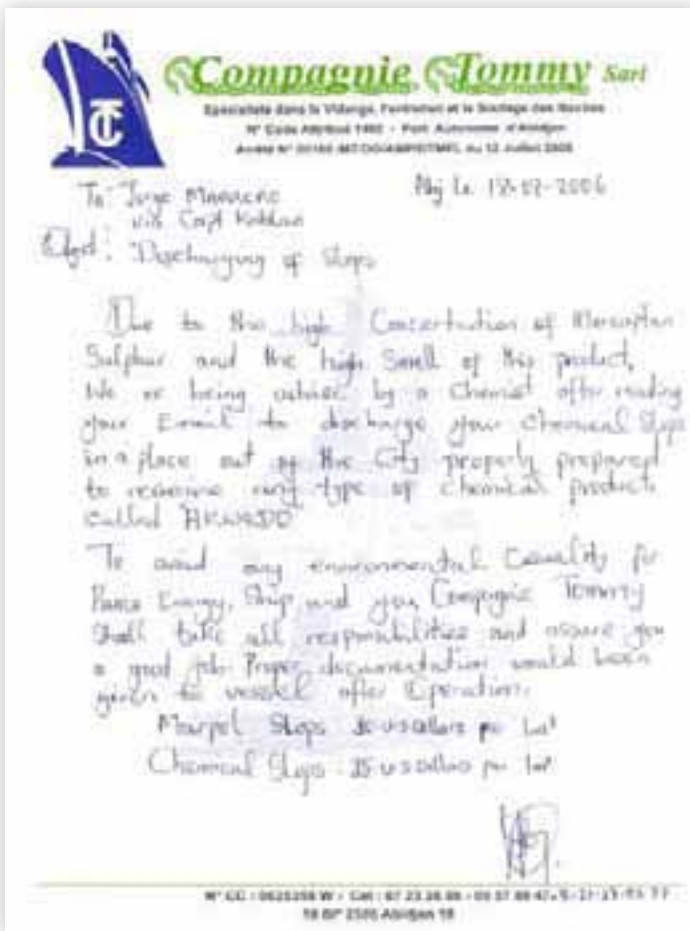 TC
Compagnie Tommy Sarl
Spécialiste dans la Vidange, l'entretien et le Soutage des Navires
N° Code Attribué 1492 - Port Autonome d'Abidjan
du 12 Juillet 2006
To: Jorge Marrero
via Capt Kablan
Abj Le 18-07-2006
Objet: Discharging of Slops
Due to the high Concentration of Mercaptan
Sulphur and the high Smell of this product,
We re being advise by a Chemist after reading
your Email to discharge your Chemical Slops
in a place out of the City properly prepared
to receive any type of Chemical product
Called "AKWEDO"
To avoid any environmental Casualty for
Puma Energy, Ship and you, Compagnie Tommy
Shall take all responsibilities and assure you
a good job. Proper documentation would been
given to vessel after Operation.
Marpol Slops us dollars per
Chemical Slops 35 us dollars per
N° CC : W - Cel : 07 23 26
18 BP 2505 Abidjan 18